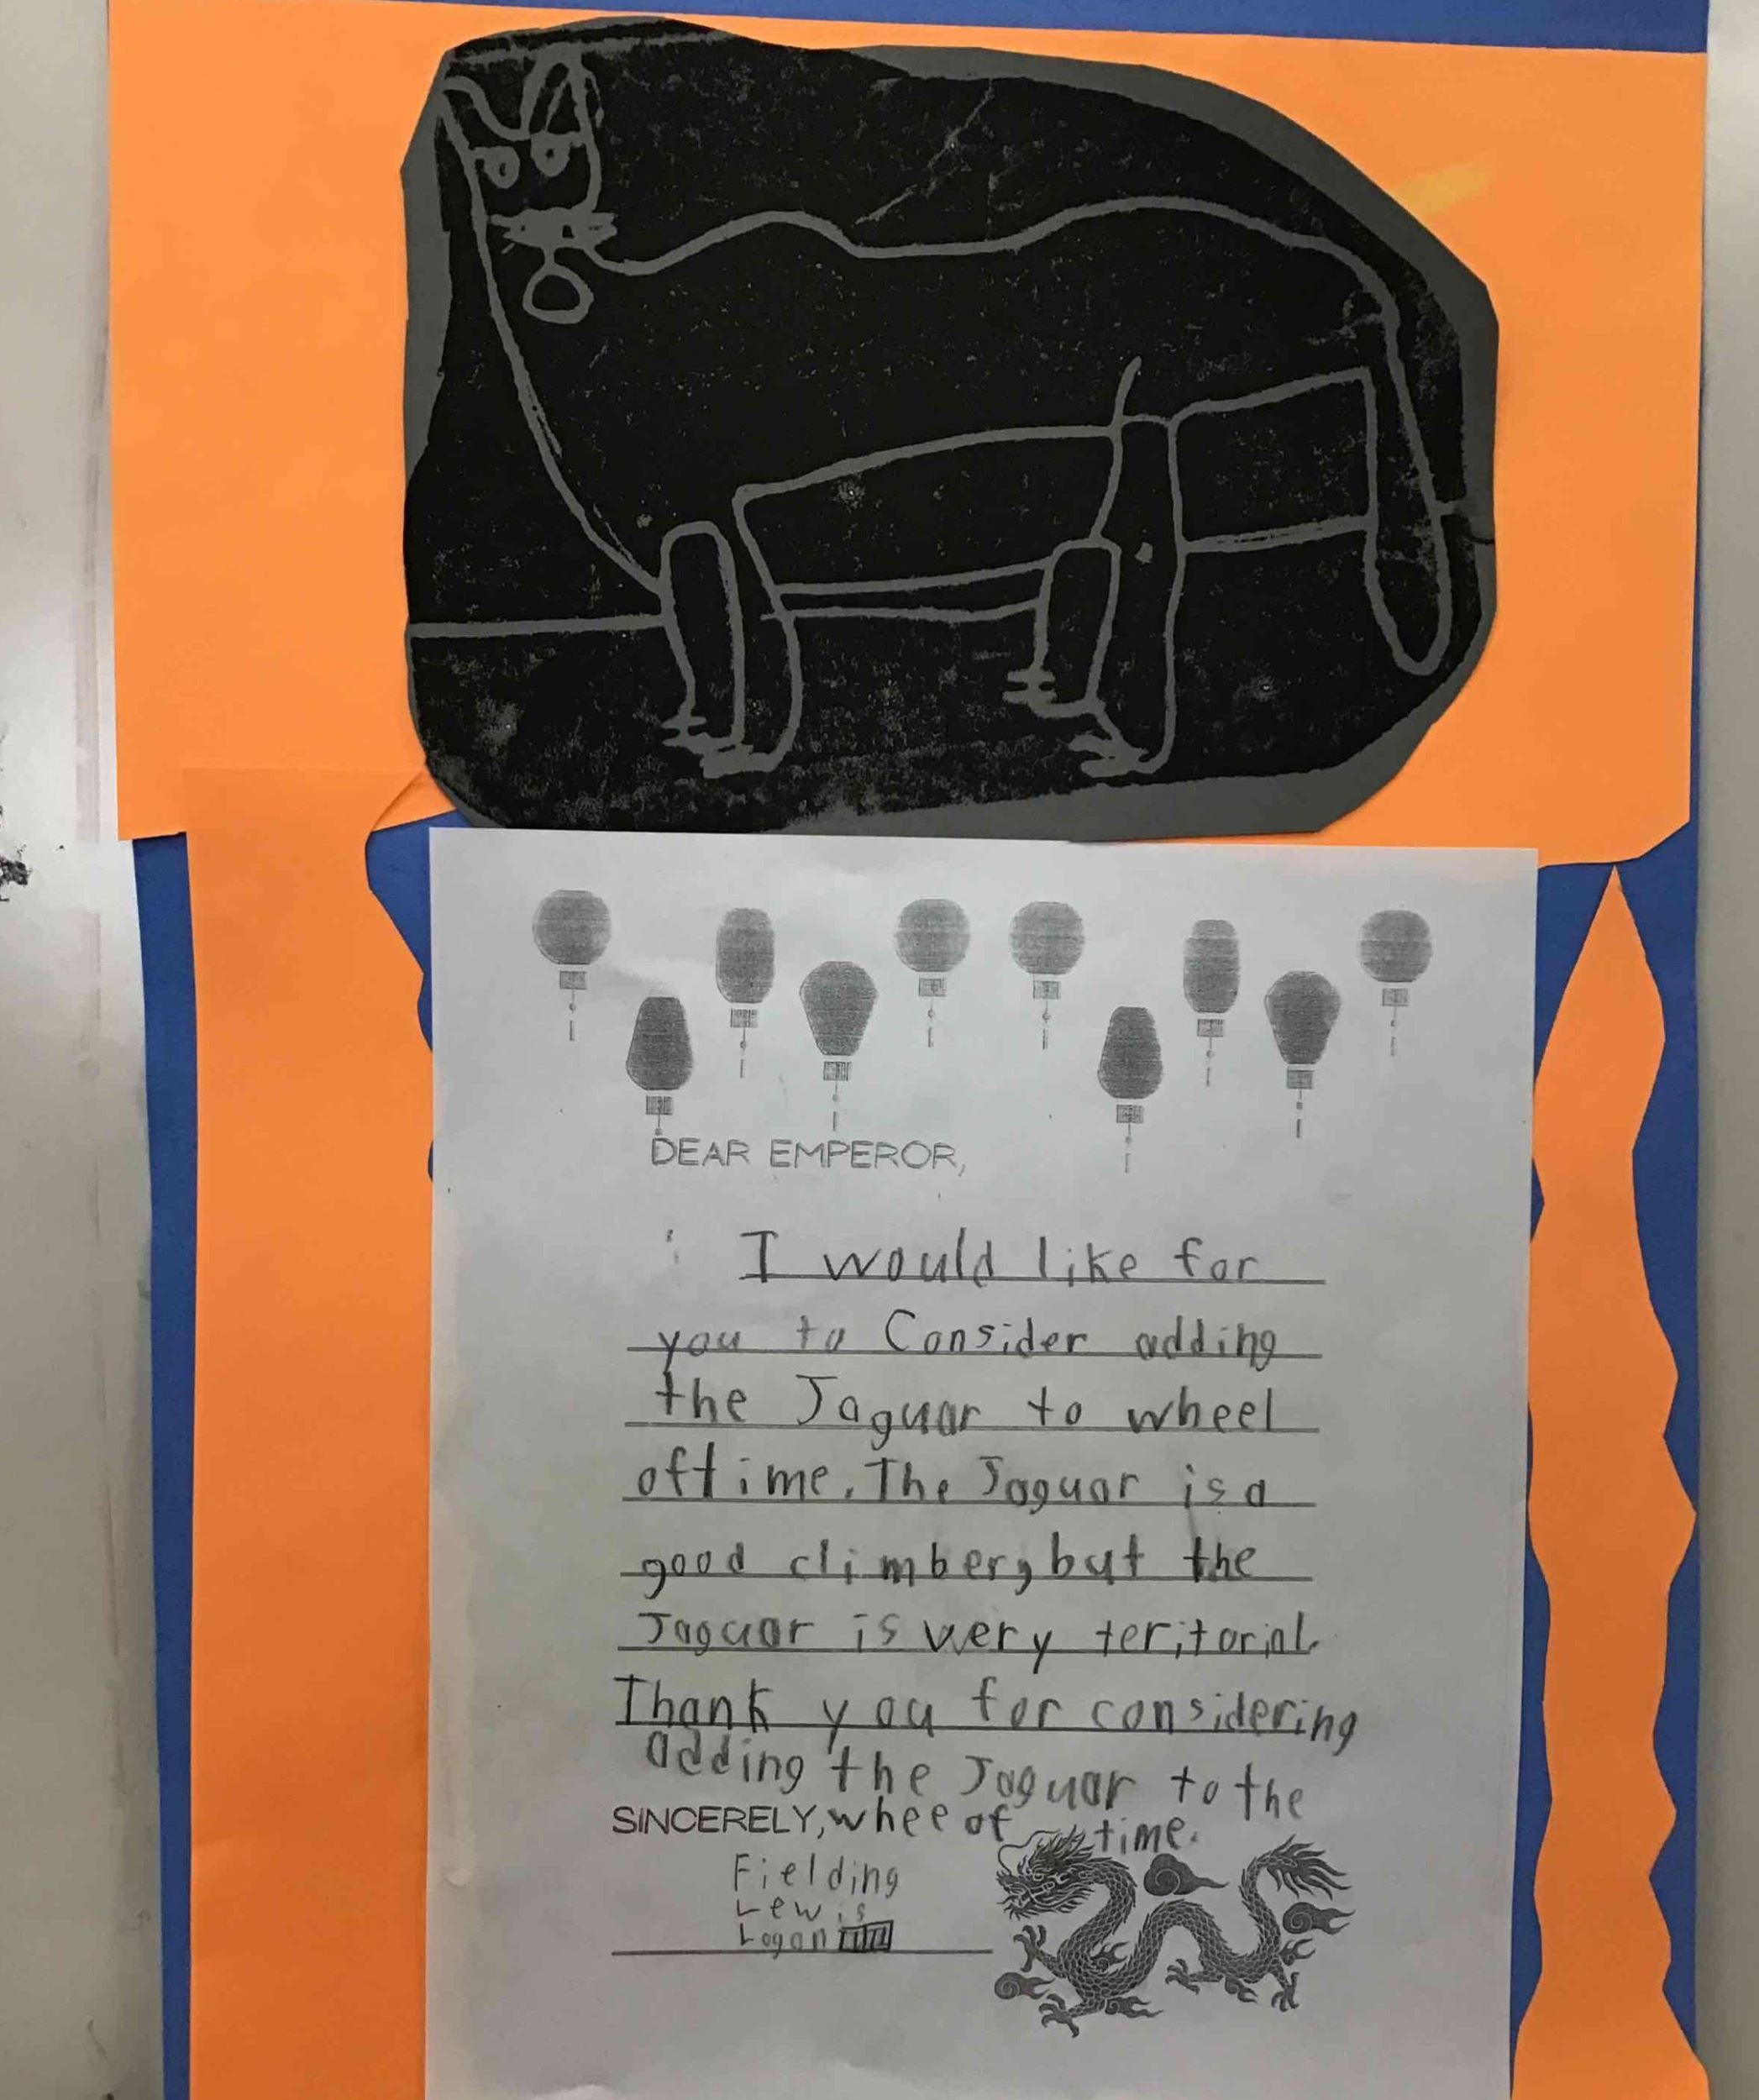 DEAR EMPEROR,
I would like for
you to Consider adding
the Jaguar to wheel
oftime. The Jaguar is a
good climber, but the
Jaguar is very teritorial.
Thank you for considering
adding the Jaguar to the
SINCERELY, whee of time.
Fielding
Lewis
Logan